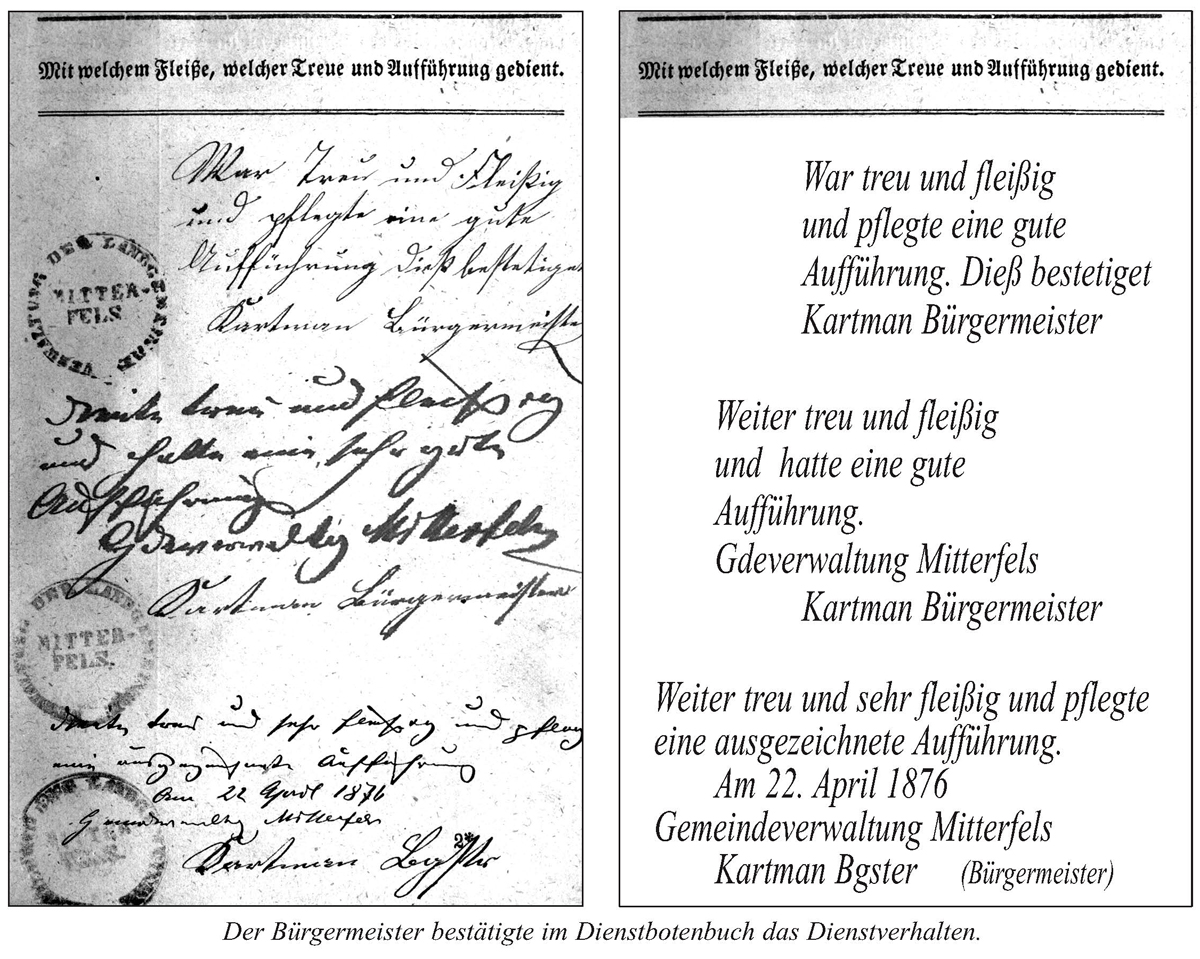 Mit welchem Fleiße, welcher Treue und Aufführung gedient.
War Treu und Fleißig
und pflegte eine gute
Aufführung Dieß bestetiget
Kartman Bürgermeister
VERWALTUNG DER LANDGEMEINDE
MITTER-
FELS
Weiter treu und fleißig
und hatte eine sehr gute
Aufführung
Gdeverwaltg Mitterfels
Kartman Bürgermeister
MITTER-
FELS.
Weiter treu und sehr fleißig und pfleg
eine ausgezeichnete Aufführung
Am 22 April 1876
Mitterfels
Kartman Bgstr
Mit welchem Fleiße, welcher Treue und Aufführung gedient.
War treu und fleißig
und pflegte eine gute
Aufführung. Dieß bestetiget
Kartman Bürgermeister
Weiter treu und fleißig
und hatte eine gute
Aufführung.
Gdeverwaltung Mitterfels
Kartman Bürgermeister
Weiter treu und sehr fleißig und pflegte
eine ausgezeichnete Aufführung.
Am 22. April 1876
Gemeindeverwaltung Mitterfels
Kartman Bgster (Bürgermeister)
Der Bürgermeister bestätigte im Dienstbotenbuch das Dienstverhalten.